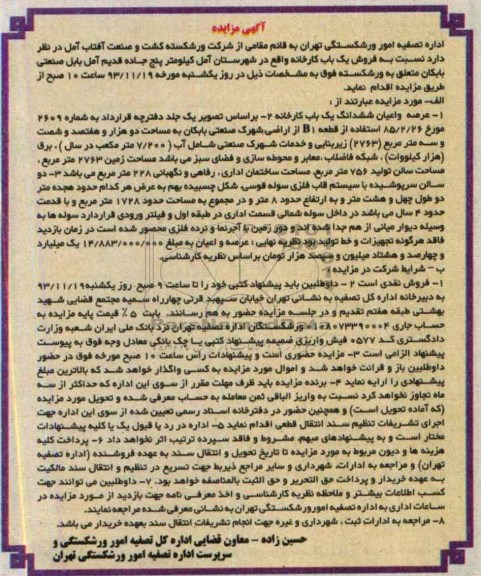 آگهی مزایده
اداره تصفیه امور ورشکستگی تهران به قائم مقامی از شرکت ورشکسته کشت و صنعت آفتاب آمل در نظر
دارد نسبت به فروش یک باب کارخانه واقع در شهرستان آمل کیلومتر پنج جاده قدیم آمل بابل صنعتی
بابکان متعلق به ورشکسته فوق به مشخصات ذیل در روز یکشنبه مورخه ۹۳/۱۱/۱۹ ساعت ۱۰ صبح از
طریق مزایده اقدام نماید.
الف- مورد مزایده عبارتند از :
۱- عرصه واعیان ششدانگ یک باب کارخانه ۲- براساس تصویر یک جلد دفترچه قرارداد به شماره ۲۶۰۹
مورخ ۸۵/۲/۲۶ استفاده از قطعه B۱ از اراضی شهرک صنعتی بابکان به مساحت دو هزار و هفتصد و شصت
و سه متر مربع (۲۷۶۳) زیربنایی و خدمات شهرک صنعتی شامل آب (۷/۲۰۰ متر مکعب در سال ) ، برق
(هزار کیلووات) ، شبکه فاضلاب ،معابر و محوطه سازی و فضای سبز می باشد مساحت زمین ۲۷۶۳ متر مربع ،
مساحت سالن تولید ۷۵۶ متر مربع، مساحت ساختمان اداری ، رفاهی و نگهبانی ۲۲۸ متر مربع می باشد ۳- دو
سالن سرپوشیده با سیستم قاب فلزی سوله قوسی، شکل چسبیده بهم به عرض هر کدام حدود هجده متر
دو طول چهل و هشت متر و به ارتفاع حدود ۸ متر و در مجموع به مساحت حدود ۱۷۲۸ متر مربع و با قدمت
حدود ۴ سال می باشد در داخل سوله شمالی قسمت اداری در طبقه اول و فیلتر ورودی قراردارد سوله ها به
وسیله دیوار میانی از هم جدا شده اند و دور زمین با آجرنما و نرده فلزی محصور شده است در زمان بازدید
فاقد هرگونه تجهیزات و خط تولید بود نظریه نهایی : عرصه و اعیان به مبلغ ۱۴/۸۸۳/۰۰۰/۰۰۰ یک میلیارد
و چهارصد و هشتاد میلیون و سیصد هزار تومان براساس نظریه کارشناسی.
ب – شرایط شرکت در مزایده :
۱- فروش نقدی است ۲ – داوطلبین باید پیشنهاد کتبی خود را تا ساعت ۹ صبح روز یکشنبه۹۳/۱۱/۱۹
به دبیرخانه اداره کل تصفیه به نشانی تهران خیابان سپهبد قرنی چهارراه سمیه مجتمع قضایی شهید
بهشتی طبقه هفتم تقدیم و در جلسه مزایده حضور به هم رسانند. بابت ۵٪ قیمت پایه مزایده به
حساب جاری ورشکستگان اداره تصفیه تهران نزد بانک ملی ایران شعبه وزارت
دادگستری کد ۰۵۷۷ فیش واریزی ضمیمه پیشنهاد کتبی یا چک بانکی معادل وجه فوق به پیوست
پیشنهاد الزامی است ۳- مزایده حضوری است و پیشنهادات رأس ساعت ۱۰ صبح مورخه فوق در حضور
داوطلبین باز و قرائت خواهد شد و اموال مورد مزایده به کسی واگذار خواهد شد که بالاترین مبلغ
پیشنهادی را ارایه نماید ۴- برنده مزایده باید ظرف مهلت مقرر از سوی این اداره که حداکثر از سه
ماه تجاوز نخواهد کرد نسبت به واریز الباقی ثمن معامله به حساب معرفی شده و تحویل مورد مزایده
(که آماده تحویل است) و همچنین حضور در دفترخانه اسناد رسمی تعیین شده از سوی این اداره جهت
اجرای تشریفات تنظیم سند انتقال قطعی اقدام نماید ۵- اداره در رد یا قبول یک یا کلیه پیشنهادات
مختار است و به پیشنهادهای مبهم، مشروط و فاقد سپرده ترتیب اثر نخواهد داد ۶- پرداخت کلیه
هزینه ها و دیون مربوط به مورد مزایده تا تاریخ تحویل و انتقال سند به عهده فروشنده (اداره تصفیه
تهران) و مراجعه به ادارات، شهرداری و سایر مراجع ذیربط جهت تسریع در تنظیم و انتقال سند مالکیت
به عهده خریدار و پرداخت حق التحریر و حق الثبت بالمناصفه خواهد بود. ۷- داوطلبین می توانند جهت
کسب اطلاعات بیشتر و ملاحظه نظریه کارشناسی و اخذ معرفی نامه جهت بازدید از مورد مزایده در
ساعات اداری به اداره تصفیه امورورشکستگی تهران به نشانی معرفی شده مراجعه نمایند.
۸- مراجعه به ادارات ثبت ، شهرداری و غیره جهت انجام تشریفات انتقال سند بعهده خریدار می باشد.
حسین زاده – معاون قضایی اداره کل تصفیه امور ورشکستگی و
سرپرست اداره تصفیه امور ورشکستگی تهران